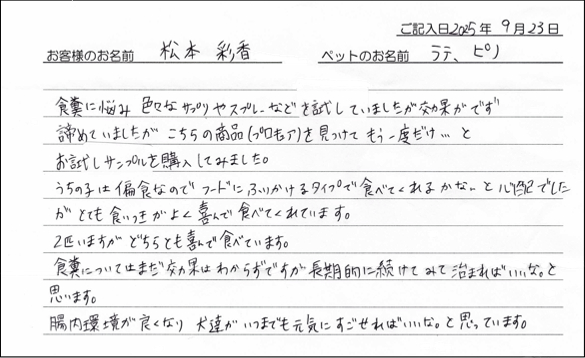 ご記入日2025年 9月23日
お客様のお名前 松本 彩香 ペットのお名前 ラテ、ピノ
食糞に悩み 色々なサプリやスプレーなどを試していましたが効果がでず
諦めていましたが こちらの商品(プロキュア)を見つけて もう一度だけ…と
お試しサンプルを購入してみました。
うちの子は偏食なので フードにふりかけるタイプで食べてくれるかな…と心配でした
が とても食いつきがよく喜んで食べてくれています。
2匹いますが どちらとも喜んで食べています。
食糞についてはまだ効果はわからずですが長期的に続けてみて治ればいいな。と
思います。
腸内環境が良くなり 犬達がいつまでも元気にすごせればいいな。と思っています。